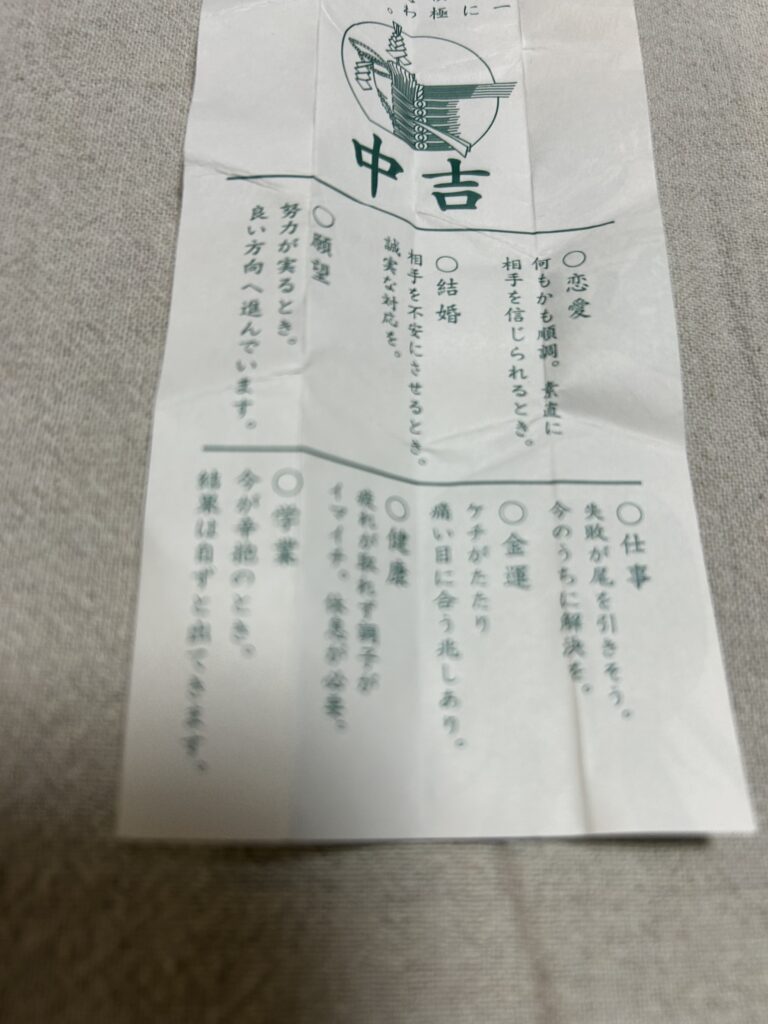 中吉
〇恋愛
何もかも順調。素直に
相手を信じられるとき。
〇結婚
相手を不安にさせるとき。
誠実な対応を。
〇願望
努力が実るとき。
良い方向へ進んでいます。
〇仕事
失敗が尾を引きそう。
今のうちに解決を。
〇金運
ケチがたたり
痛い目に合う兆しあり。
〇健康
疲れが取れず調子が
イマイチ。休息が必要。
〇学業
今が辛抱のとき。
結果は自ずと出てきます。